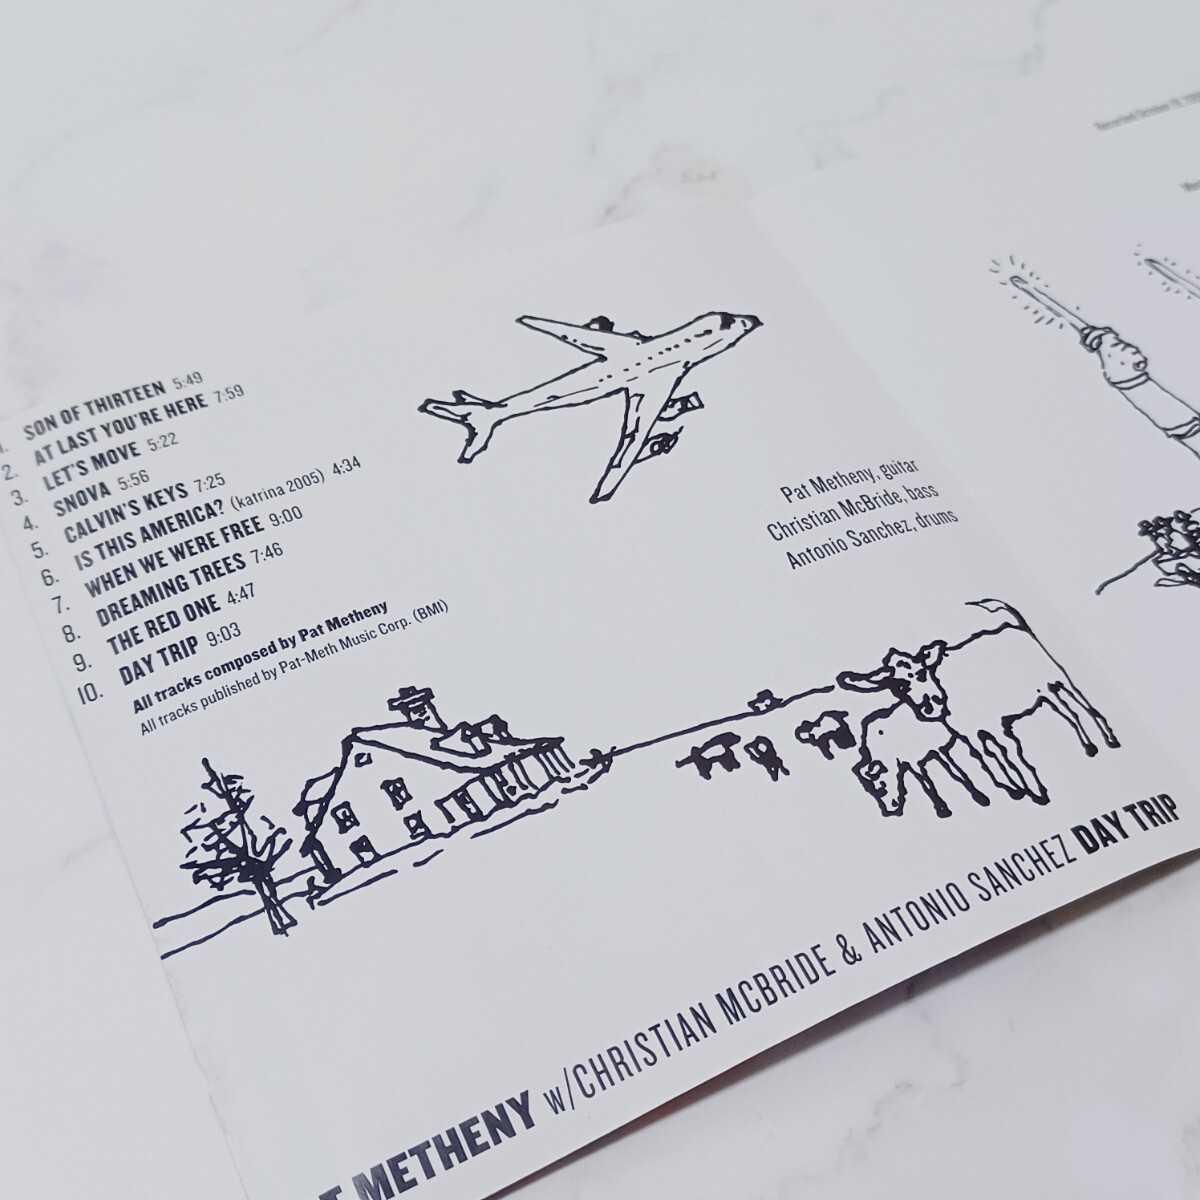 1. SON OF THIRTEEN 5:49
2. AT LAST YOU'RE HERE 7:59
3. LET'S MOVE 5:22
4. SNOVA 5:56
5. CALVIN'S KEYS 7:25
6. IS THIS AMERICA? (katrina 2005) 4:34
7. WHEN WE WERE FREE 9:00
8. DREAMING TREES 7:46
9. THE RED ONE 4:47
10. DAY TRIP 9:03
All tracks composed by Pat Metheny
All tracks published by Pat-Meth Music Corp. (BMI)
Pat Metheny, guitar
Christian McBride, bass
Antonio Sanchez, drums
T METHENY w/CHRISTIAN MCBRIDE & ANTONIO SANCHEZ DAY TRIP
Recorded October 19,